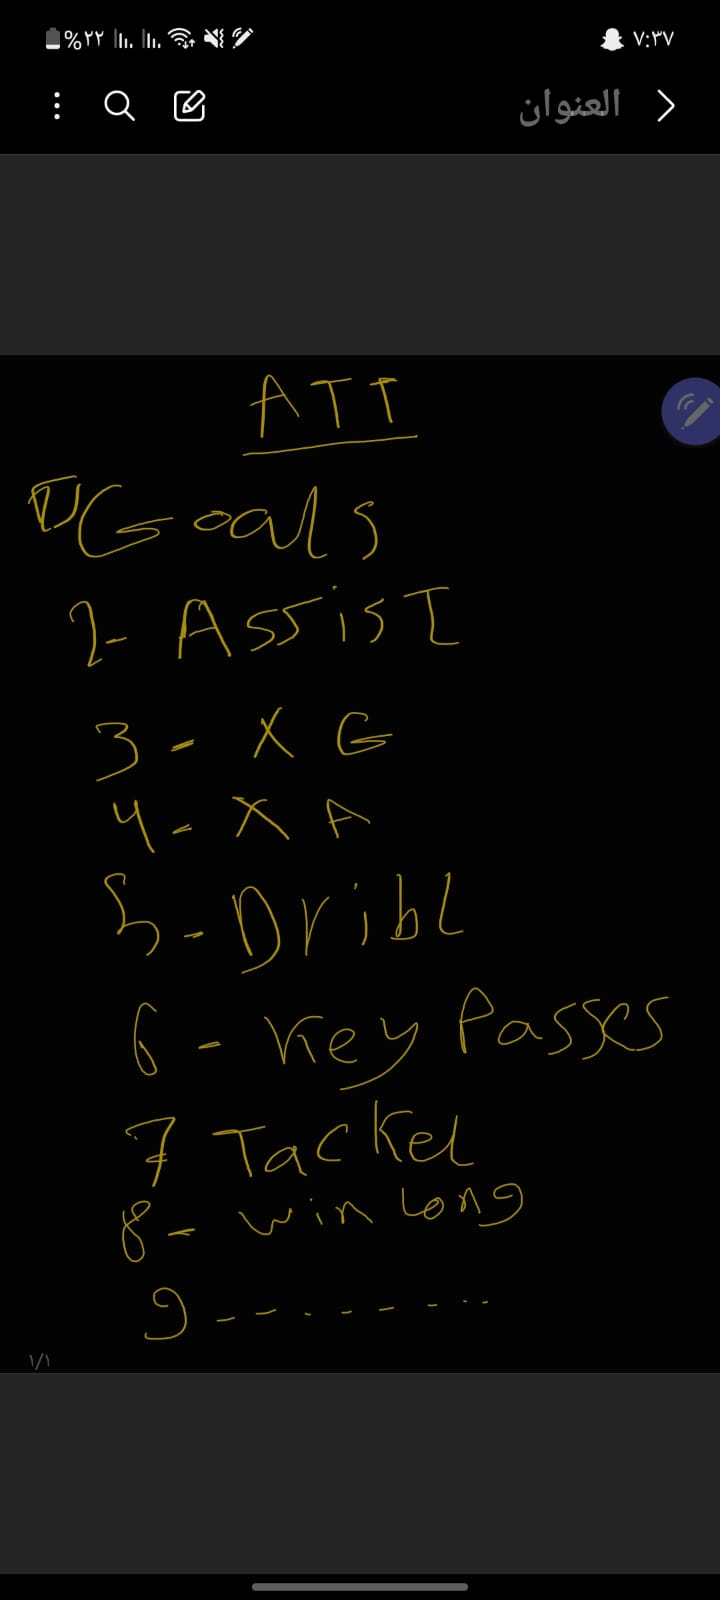 %٢٢
٧:٣٧
العنوان
ATT
1) Goals
2- Assist
3- X G
4- X A
5- Dribl
6- Key Passes
7 Tackel
8- win Long
9 - - - - - - ..
١/١